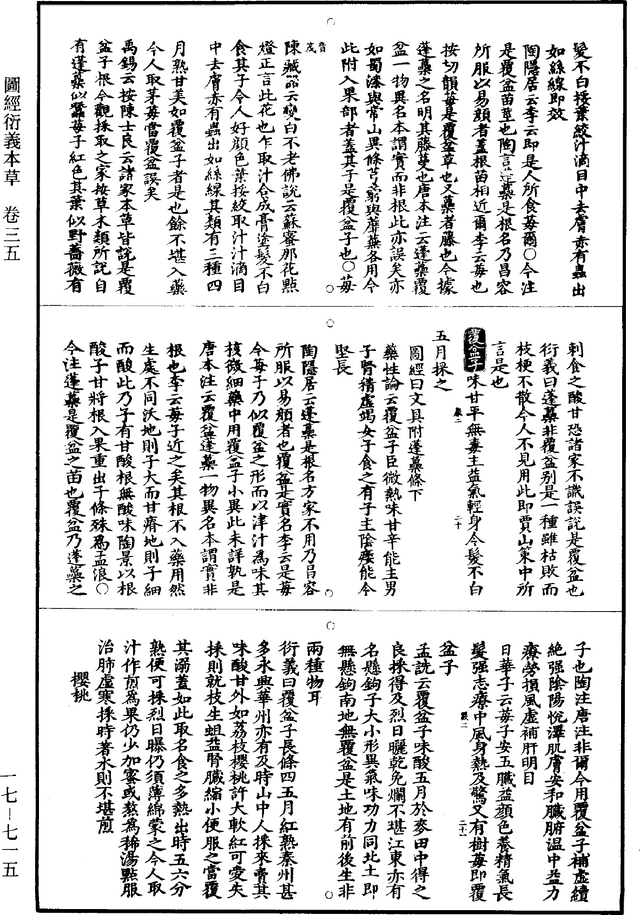 髮不白挼葉絞汁滴目中去膚赤有蟲出
如絲線即效
陶隱居云李云即是人所食莓爾○今注
是覆盆苗草也陶言蓬虆是根名乃昌容
所服以易顏者蓋根苗相近爾李云莓也
按切韻莓是覆盆草也又虆者藤也今據
蓬虆之名明其藤蔓也唐本注云蓬虆覆
盆一物異名本謂實而非根此亦誤矣亦
如蜀漆與常山異條芎藭與蘼蕪各用今
此附入果部者蓋其子是覆盆子也○莓
音茂
陳藏器云變白不老佛說云蘇蜜那花點
燈正言此花也乍取汁合成膏塗髮不白
食其子令人好顏色葉按絞取汁汁滴目
中去膚赤有蟲出如絲線其類有三種四
月熟甘美如覆盆子者是也餘不堪入藥
今人取茅莓當覆盆誤矣
禹錫云按陳士良云諸家本草皆說是覆
盆子根今觀採取之家按草木類所說自
有蓬虆似蠶莓子紅色其葉似野薔薇有
刺食之酸甘恐諸家不識誤說是覆盆也
衍義曰蓬虆非覆盆別是一種雖枯敗而
枝梗不散今人不見用此即賈山策中所
言是也
覆盆子味甘平無毒主益氣輕身令髮不白
五月採之
圖經曰文具附蓬虆條下
藥性論云覆盆子臣微熱味甘辛能主男
子腎精虛竭女子食之有子主陰痿能令
堅長
陶隱居云蓬虆是根名方家不用乃昌容
所服以易顏者也覆盆是實名李云是莓
今莓子乃似覆盆之形而以津汁為味其
核微細藥中用覆盆子小異此未詳孰是
唐本注云覆盆蓬虆一物異名本謂實非
根也李云莓子近之矣其根不入藥用然
生處不同沃地則子大而甘瘠地則子細
而酸此乃子有甘酸根無酸味陶景以根
酸子甘將根入果重出子條殊為孟浪○
今注蓬虆是覆盆之苗也覆盆乃蓬虆之
子也陶注唐注非爾今用覆盆子補虛續
絕強陰陽悅澤肌膚安和臟腑溫中益力
療勞損風虛補肝明目
日華子云莓子安五臟益顏色養精氣長
髮強志療中風身熱及驚又有樹莓即覆
盆子
孟詵云覆盆子味酸五月於麥田中得之
良採得及烈日曬乾免爛不堪江東亦有
名懸鉤子大小形異氣味功力同北土即
無懸鉤南地無覆盆是土地有前後生非
兩種物耳
衍義曰覆盆子長條四五月紅熟秦州甚
多永興華州亦有及時山中人採來賣其
味酸甘外如荔枝櫻桃許大軟紅可愛失
採則就枝生蛆益腎臟縮小便服之當覆
其溺盎如此取名食之多熱出時五六分
熟便可採烈日曝仍須薄綿蒙之今人取
汁作煎為果仍少加蜜或熬為稀湯點服
治肺虛寒採時著水則不堪煎
櫻桃
圖經衍義本草　卷三五
一七－七一五